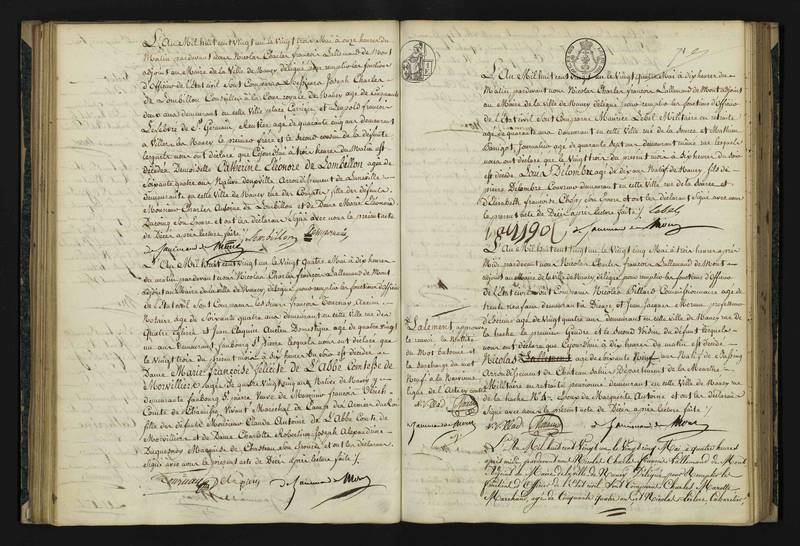 L'An Mil huit cent Vingt un le Vingt trois Mai à onze heures du
Matin pardevant nous Nicolas Charles françois Lallemand de Mont
adjoint au Maire de la Ville de Nancy délégué pour remplir les fonctions
d'Officier de l'Etat civil sont Comparus Joseph Charles
de Lombillon Conseiller à la Cour royale de Nancy agé de Cinquante
deux ans demeurant en cette Ville place Carrière et Léopold françois
Lefebvre de St Germain Rentier agé de quarante cinq ans demeurant
à Villers les Nancy le premier frère et le second cousin de la défunte
lesquels nous ont déclaré que Cejourd'hui à trois heures du Matin est
décédée Demoiselle Catherine Eléonore de Lombillon agée de
Soixante quatre ans Native Arrondissement de Lunéville
demeurante en cette Ville de Nancy rue des Comptes fille des défunts
Monsieur Charles Antoine de Lombillon et de Dame Marie Eléonore
son Epouse et ont les déclarans Signé avec nous le présent acte
de Décès après lecture faite
Lombillon
de Mont
L'An Mil huit cent Vingt un le Vingt quatre Mai à dix heures
du matin pardevant nous Nicolas Charles françois Lallemand de Mont
adjoint au Maire de la Ville de Nancy délégué pour remplir les fonctions d'Officier
de l'Etat civil sont Comparus les Sieurs françois Tournay Ancien
Notaire agé de Soixante quatre ans demeurant en cette Ville rue des
Quatre Eglises et Jean Claquin Ancien Domestique agé de quatre Vingt
un ans demeurant faubourg St Pierre lesquels nous ont déclaré que
le Vingt trois du présent mois à dix heures du soir est décédée
Dame Marie françoise félicité de L'Abbé Comtesse de
Morvilliers agée de quatre Vingt onze ans Native de Nancy y
demeurante faubourg St Pierre Veuve de Monsieur françois
Comte de Vivant Maréchal de Camp des Armées du Roi
fille des défunts Monsieur Claude Antoine de L'Abbé Comte de
Morvilliers et de Dame Charlotte Robertine Joseph Alexandrine
Marquise de son Epouse et ont les déclarans
Signé avec nous le présent acte de Décès après lecture faite
de Mont
L'An Mil huit cent Vingt un le Vingt quatre Mai à dix heures du
Matin pardevant nous Nicolas Charles françois Lallemand de Mont adjoint
au Maire de la Ville de Nancy délégué pour remplir les fonctions d'Officier
de l'Etat civil sont Comparus Maurice Lebel Militaire en retraite
agé de quarante ans demeurant en cette Ville rue de la Source et Mathieu
Bonigot, Journalier agé de quarante Sept ans demeurant même rue lesquels
nous ont déclaré que le Vingt trois du présent mois à dix heures du soir
est décédé Louis Delombre agé de dix ans Natif de Nancy fils de
pierre Delombre Couvreur demeurant en cette Ville rue de la Source et
d'Elizabeth françoise son Epouse et ont les déclarans Signé avec nous
le présent acte de Décès après lecture faite Lebel
de Mont
L'An Mil huit cent Vingt un le Vingt cinq Mai à deux heures après
Midi pardevant nous Nicolas Charles françois Lallemand de Mont
adjoint au Maire de la Ville de Nancy délégué pour remplir les fonctions d'Officier
de l'Etat civil sont Comparus Nicolas Villard Commissionnaire agé de
trente six ans demeurant à Dieuze et Jean Jacques Moreau professeur
d'Escrime agé de Vingt quatre ans demeurant en cette Ville de Nancy rue de
la hache le premier Gendre et le second Voisin du défunt lesquels
nous ont déclaré que Cejourd'hui à dix heures du matin est décédé
Nicolas Lallement agé de soixante Neuf ans Natif de
Arrondissement de Château Salins Département de la Meurthe
Militaire en retraite pensionné demeurant en cette Ville de Nancy rue
de la hache Nº Epoux de Marguerite Antoine et ont les déclarans
Signé avec nous le présent acte de Décès après lecture faite
N. Villard Moreau
de Mont
Lalement approuvé
le renvoi la Nullité
du Mot batonné et
la surcharge du mot
Neuf à la Neuvieme
ligne de l'Acte ci contre
N. Villard Moreau
L'An Mil huit cent Vingt un le Vingt cinq Mai à quatre heures
après midi pardevant nous Nicolas Charles François Lallemand de Mont
Adjoint au Maire de la Ville de Nancy Délégué pour Remplir les
fonctions d'Officier de l'Etat civil sont Comparus Charles
Marchand, agé de Cinquante quatre ans et Nicolas Cabaretier